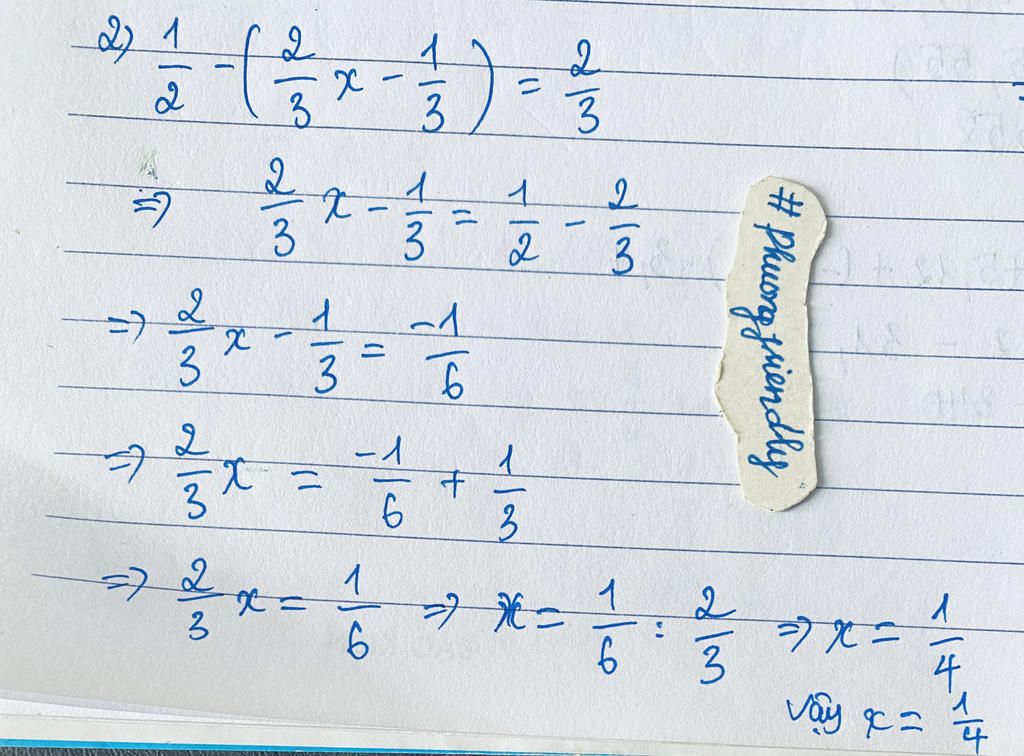 2) 1/2 - (2/3 x - 1/3) = 2/3
=> 2/3 x - 1/3 = 1/2 - 2/3
=> 2/3 x - 1/3 = -1/6
=> 2/3 x = -1/6 + 1/3
=> 2/3 x = 1/6 => x = 1/6 : 2/3 => x = 1/4
Vậy x = 1/4
#Phuongfriendly